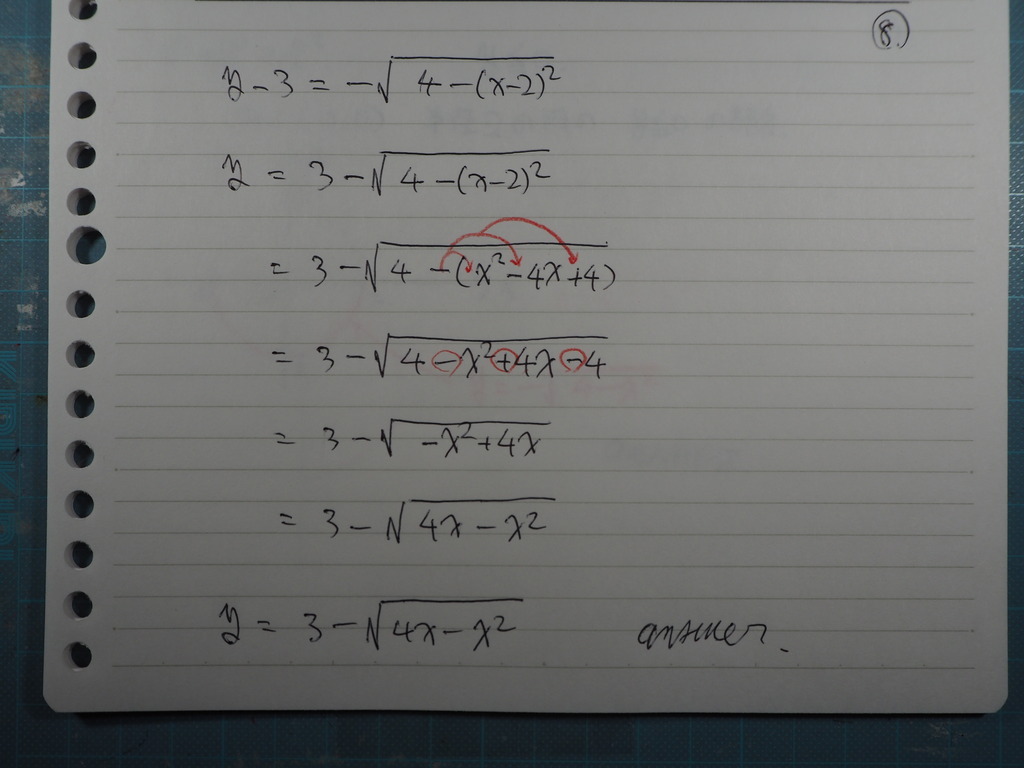 8.
y - 3 = -√(4 - (x-2)²)
y = 3 - √(4 - (x-2)²)
= 3 - √(4 - (x² - 4x + 4))
= 3 - √(4 - x² + 4x - 4)
= 3 - √(-x² + 4x)
= 3 - √(4x - x²)
y = 3 - √(4x - x²) answer.